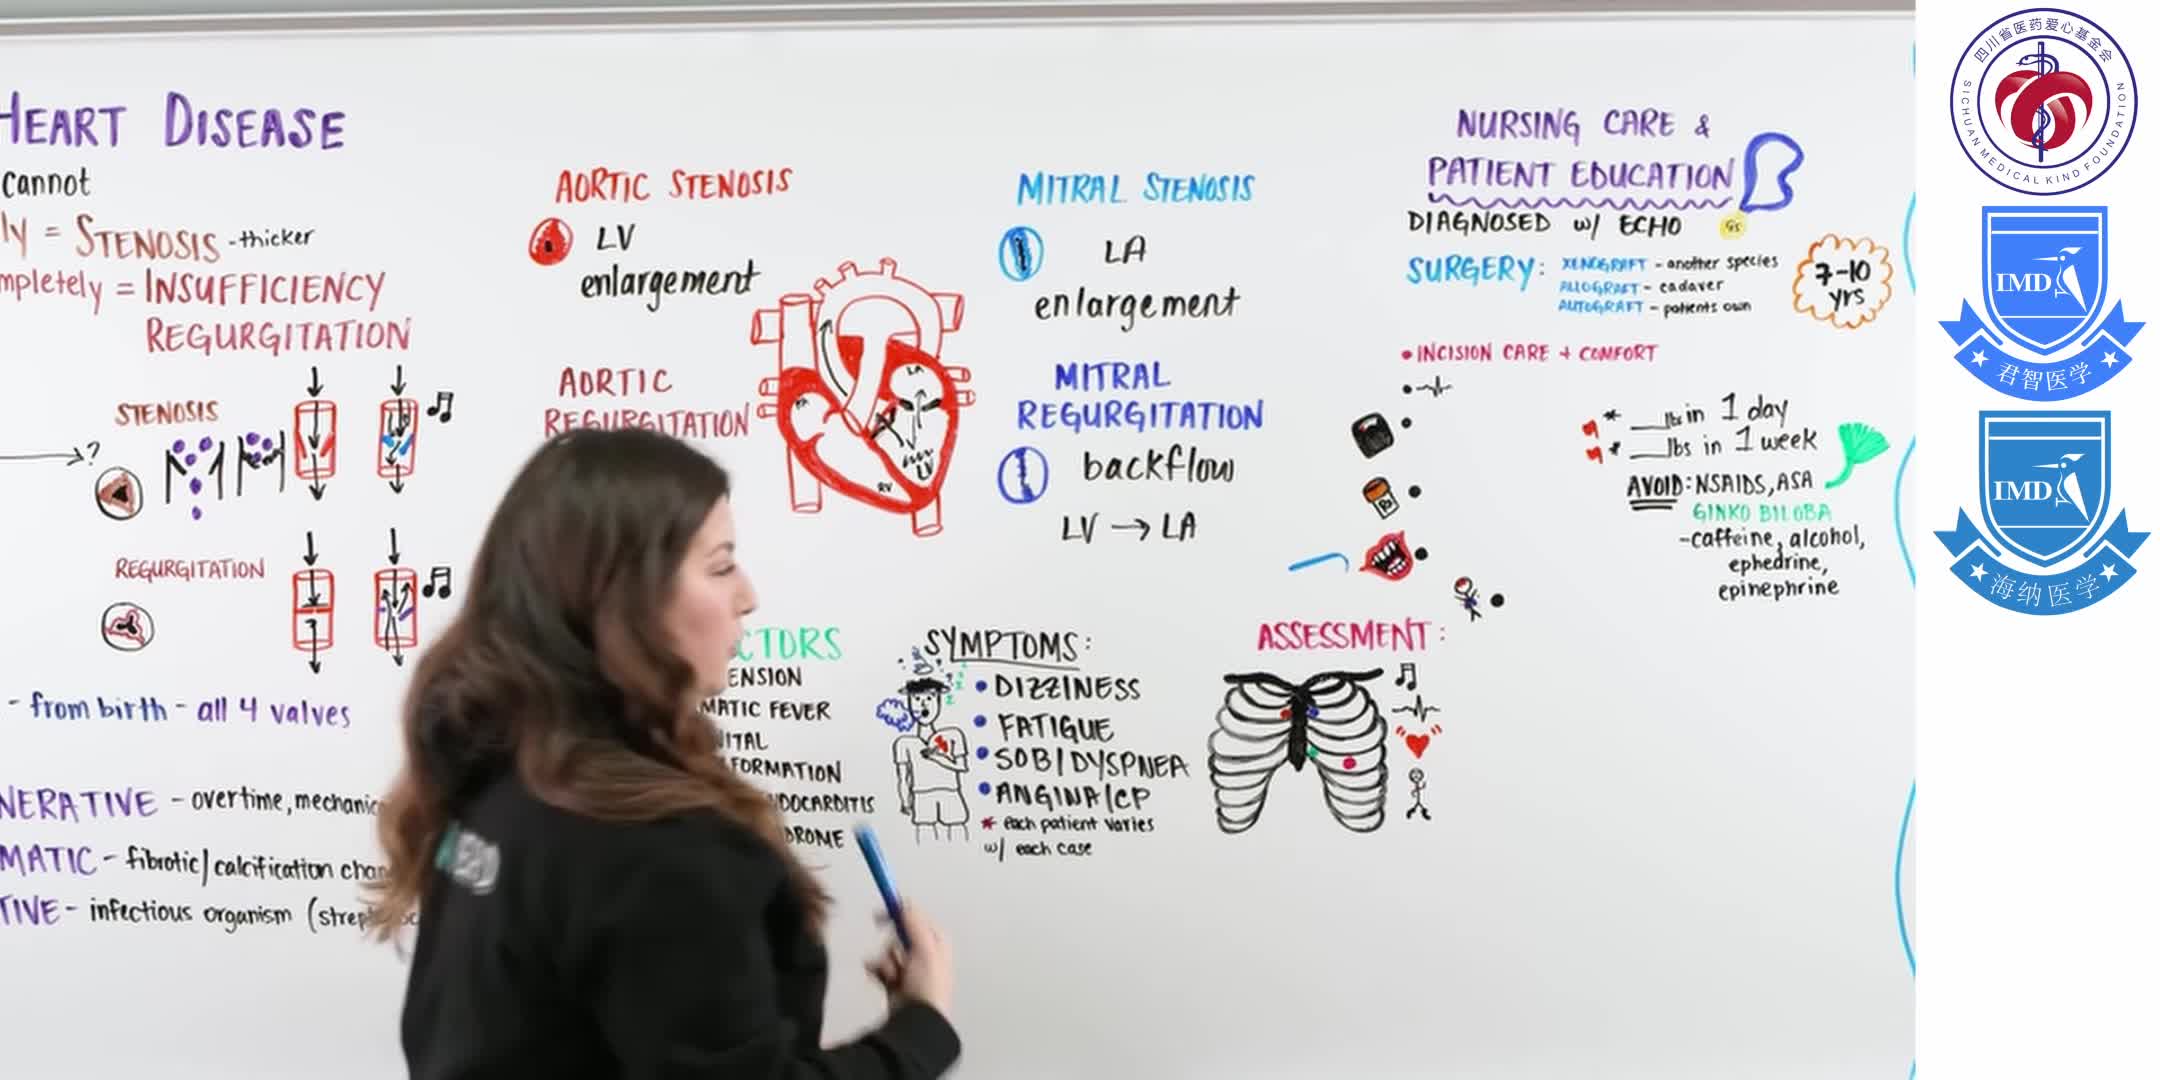 HEART DISEASE
cannot
ly = STENOSIS - thicker
mpletely = INSUFFICIENCY
REGURGITATION
STENOSIS
?
REGURGITATION
- from birth - all 4 valves
NERATIVE - overtime, mechanic
MATIC - fibrotic/calcification chan
TIVE - infectious organism (strep
AORTIC STENOSIS
LV
enlargement
AORTIC
REGURGITATION
LA
RA
LV
RV
MITRAL STENOSIS
LA
enlargement
MITRAL
REGURGITATION
backflow
LV → LA
CTORS
ENSION
MATIC FEVER
NITAL
FORMATION
NDOCARDITIS
DROME
SYMPTOMS:
• DIZZINESS
• FATIGUE
• SOB/DYSPNEA
• ANGINA/CP
* each patient varies
w/ each case
ASSESSMENT:
NURSING CARE &
PATIENT EDUCATION
DIAGNOSED w/ ECHO
SURGERY: XENOGRAFT - another species
ALLOGRAFT - cadaver
AUTOGRAFT - patients own
7-10
yrs
• INCISION CARE + COMFORT
* ___lbs in 1 day
* ___lbs in 1 week
AVOID: NSAIDS, ASA
GINKO BILOBA
- caffeine, alcohol,
ephedrine,
epinephrine
Rx
四川省医药爱心基金会
SICHUAN MEDICAL KIND FOUNDATION
IMD
君智医学
IMD
海纳医学